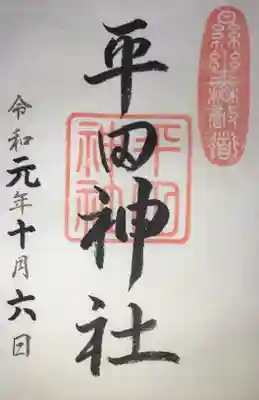 平田神社
平田神社
令和元年十月六日